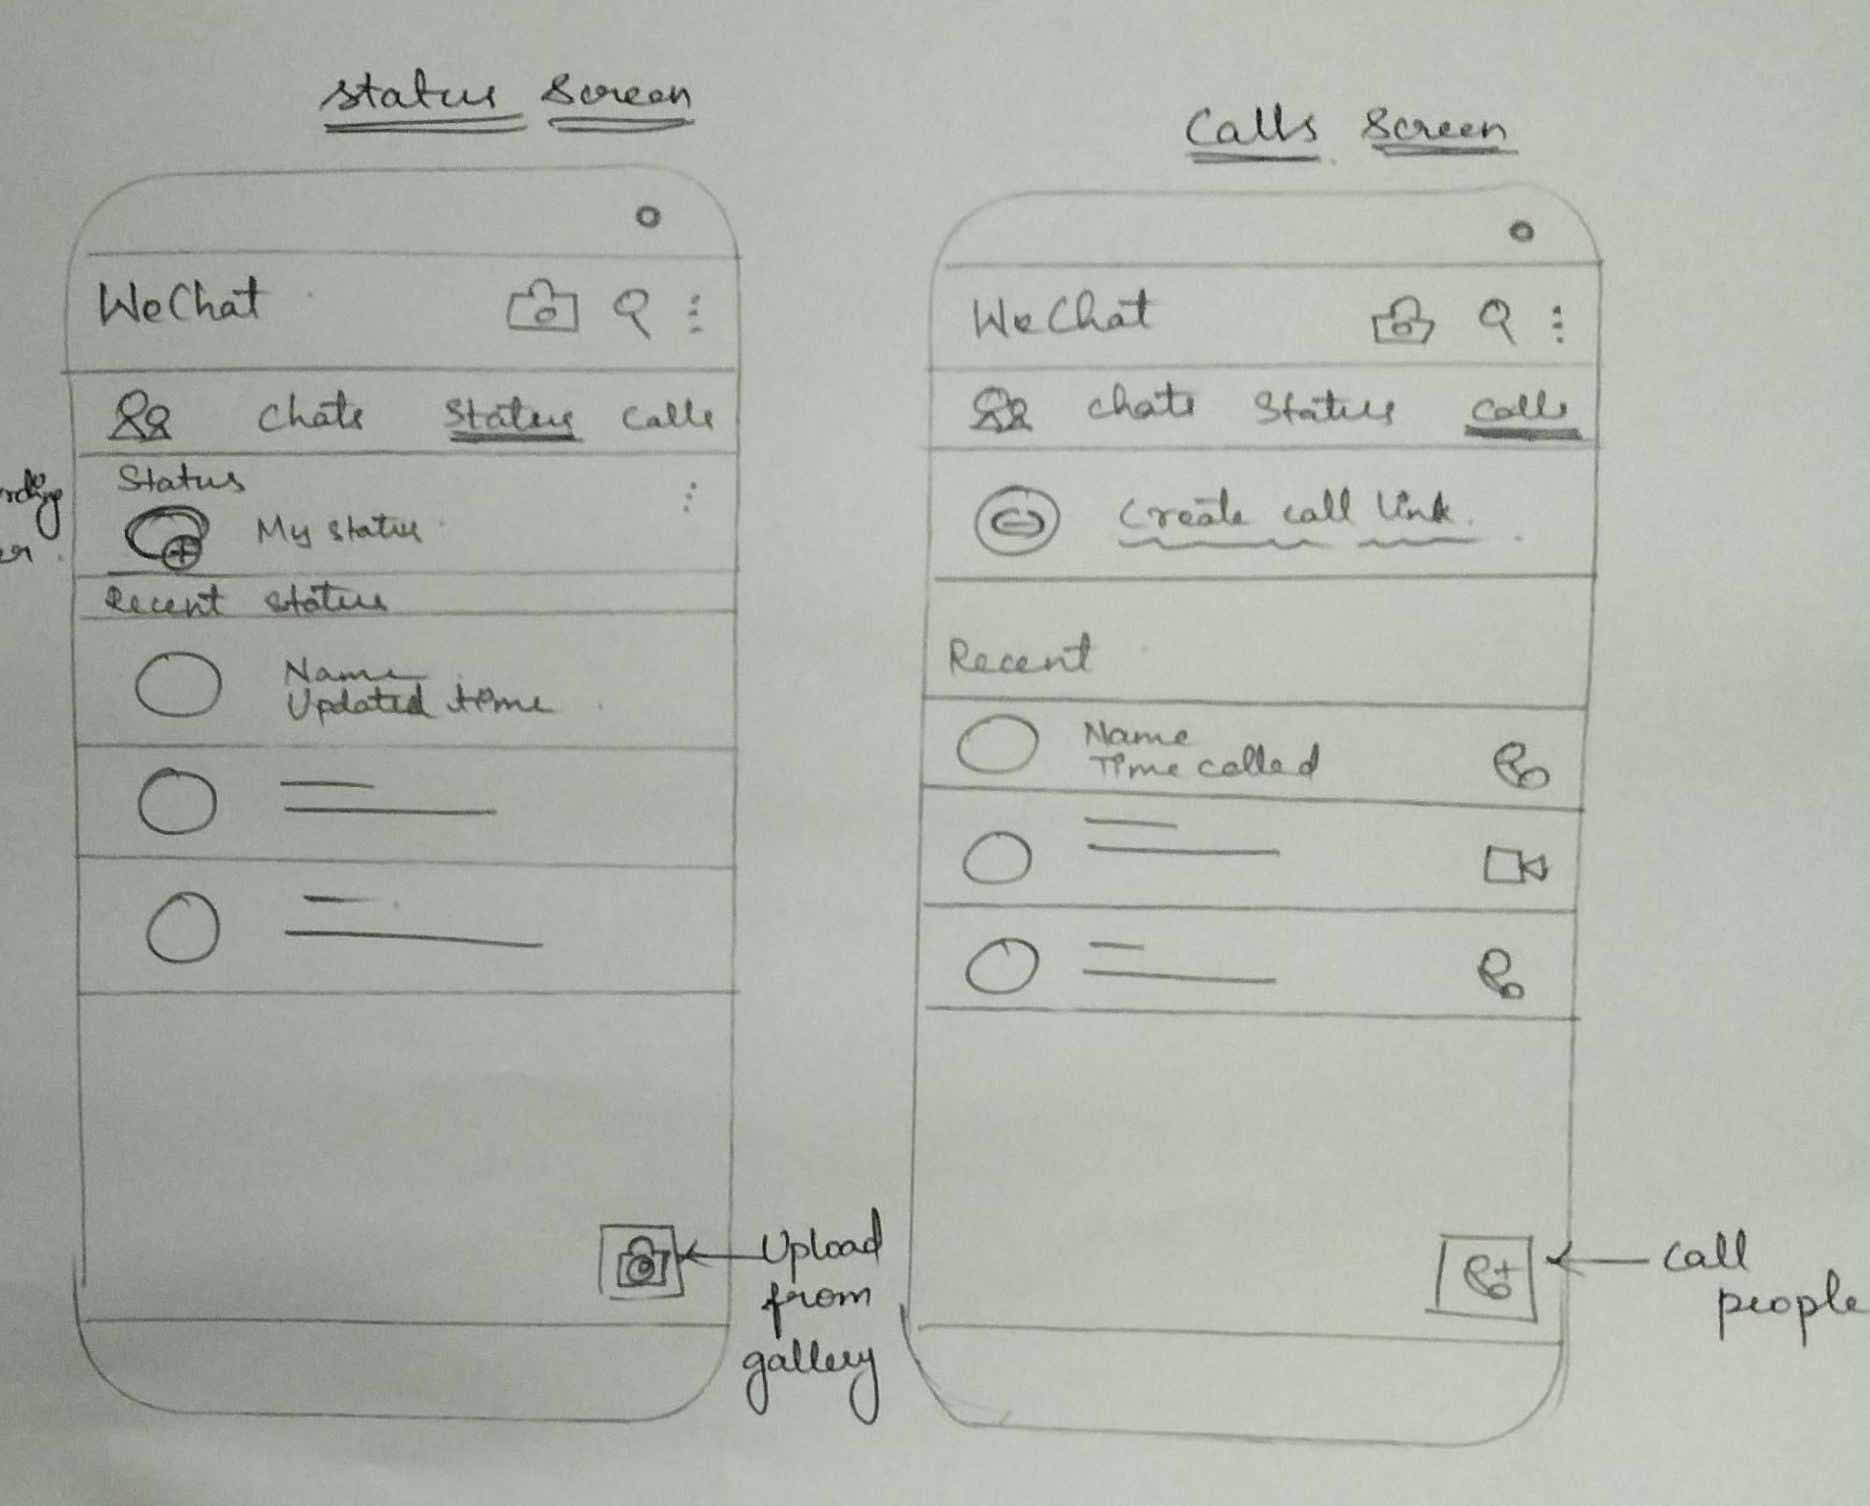 Status Screen
WeChat
Chats Status Calls
Status
My status
Recent status
Name
Updated time
Upload
from
gallery
Calls Screen
WeChat
chats Status Calls
Create call link.
Recent
Name
Time called
Call
people